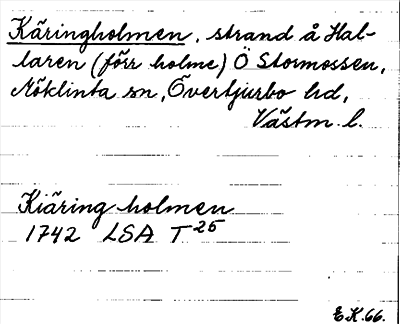 Käringholmen, strand å Hal-
laren (förr holme) Ö Stormossen,
Nöklinta sn, Övertjurbo hd,
Västm. l.
Kiäring holmen
1742 LSA T 25
E.K. 66.